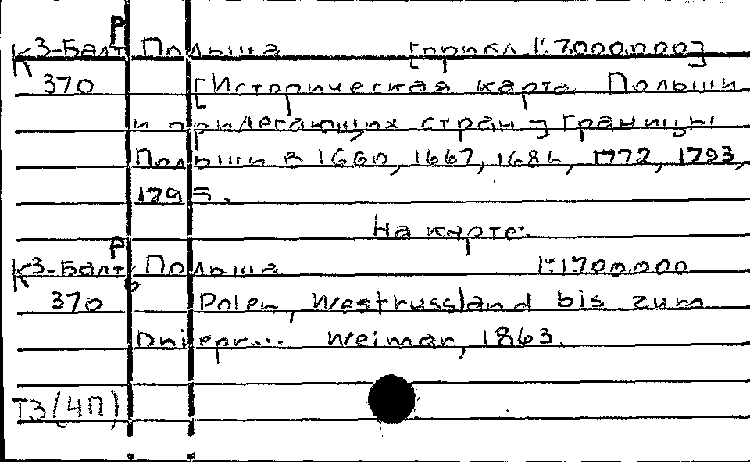 Р
К3-Балт Польша [прибл. 1:7000000]
370 [Историческая карта Польши
и прилегающих стран] Границы
Польши в 1660, 1667, 1686, 1772, 1793,
1795.
На карте:
Р
К3-Балт Польша 1:1700.000
370 Polen, Westrussland bis zum
Dniepr... Weimar, 1863.
Т3(4П)